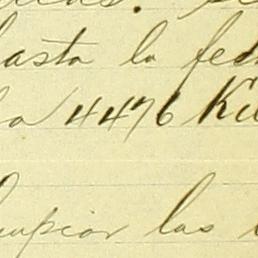 hasta la fech
la 4476 Kil
limpiar las